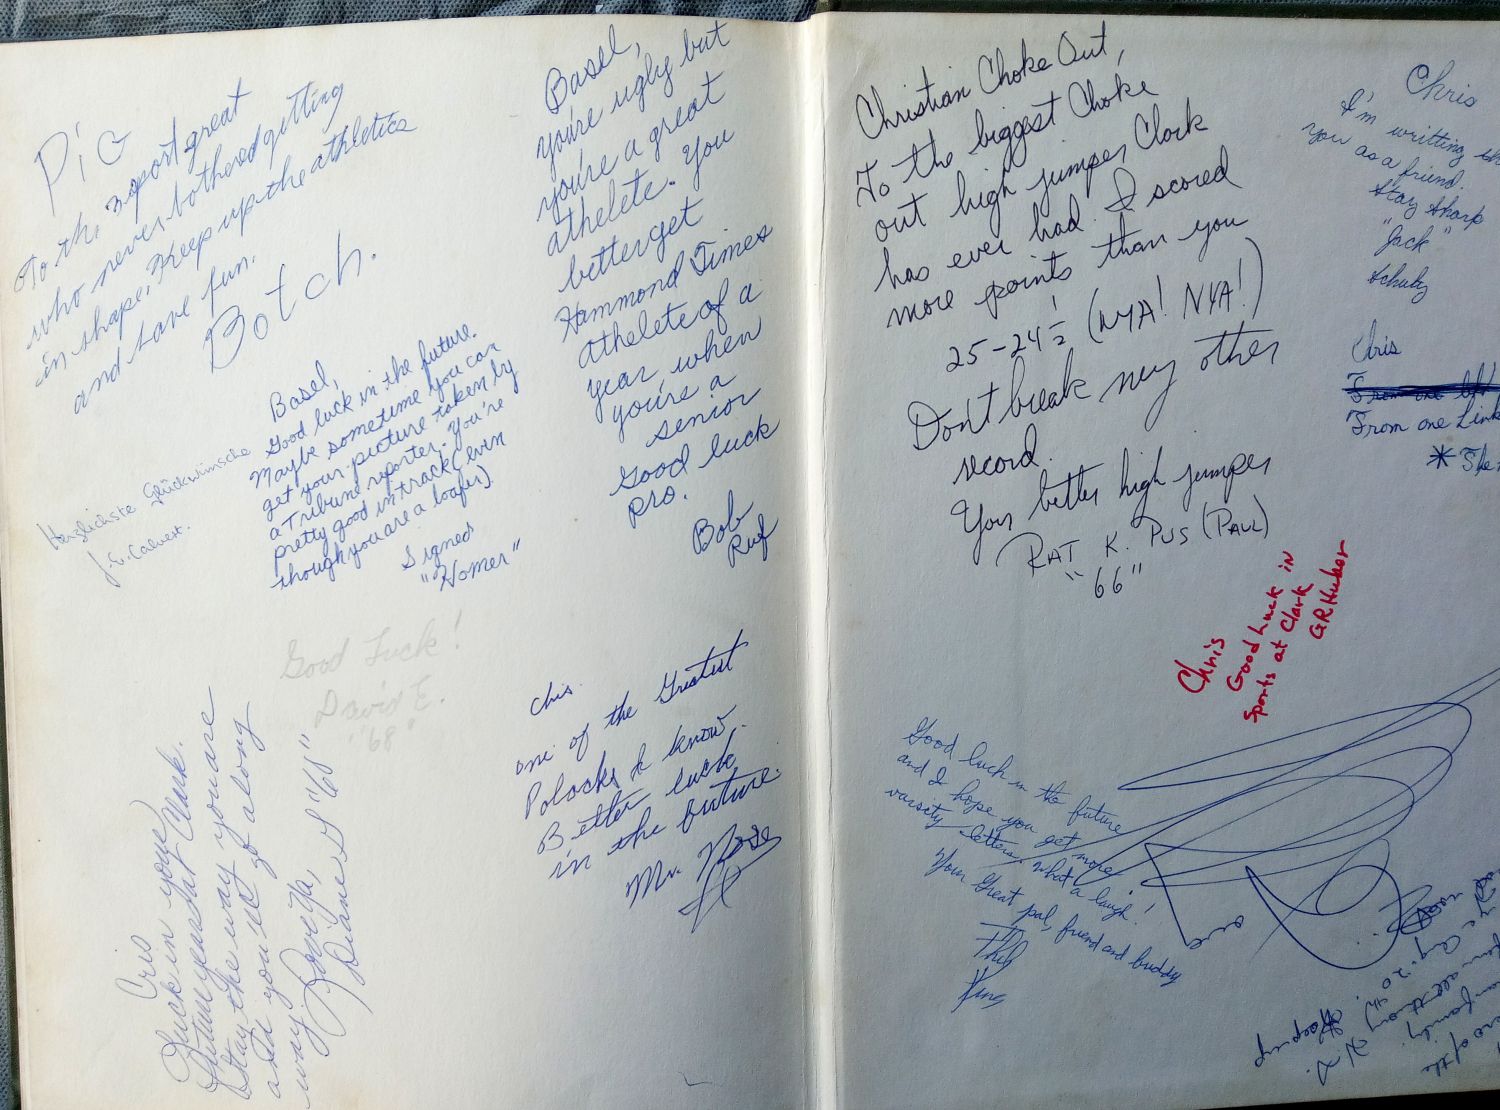 Pig
To the 3 sport great
who never bothered getting
in shape. Keep up the athletics
and have fun.
Botch.
Basel,
Good luck in the future.
Maybe sometime you can
get your picture taken by
a Tribune reporter. You're
pretty good in track (even
though you are a loafer).
Signed
"Homer"
Herzlichste Glückwünsche
J. E. Calvert.
Good Luck!
David E.
"68"
Cris
Luck in your
future years at Clark.
Stay the way you are
and you'll go a long
way
Diane S "65"
Basel,
you're ugly but
you're a great
athelete. You
better get
Hammond Times
athelete of a
year when
you're a
senior
Good luck
pro.
Bob
Ruf
Chis.
one of the Greatest
Polacks I know.
Better luck
in the future.
Mr. Rose
Christian Choke Out,
To the biggest Choke
out high jumper Clark
has ever had. I scored
more points than you
25-24½ (NYA! NYA!)
Don't break my other
record.
Your better high jumper
RAT K. PUS (PAUL)
"66"
Chris
I'm writting
you as a friend.
Stay sharp
"Jack"
Schulz
Chris
From one
From one Link
Chris
Good Luck in
Sports at Clark
G.R. Huber
Good luck in the future
and I hope you get more
varsity letters, what a laugh!
Your Great pal, friend and buddy
Phil
King
Keep up
of the
family